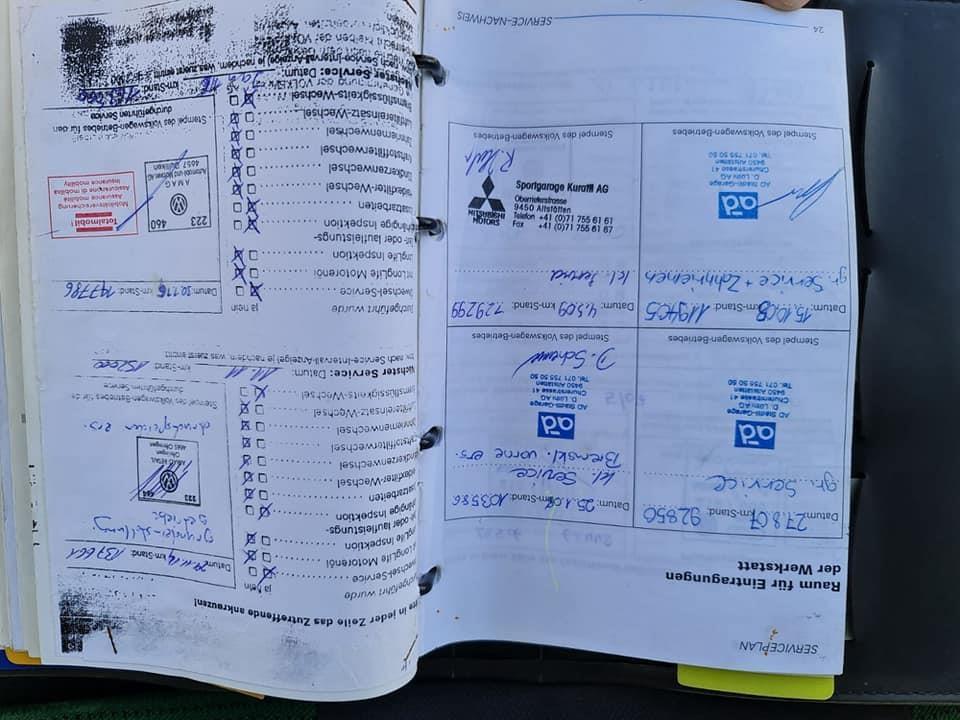 SERVICEPLAN
Raum für Eintragungen
der Werkstatt
Datum: 27.8.07 km-Stand: 92850
gr. Service
ad
AD Stadt-Garage
Churerstrasse 41
9450 Altstätten
Tel. 071 755 50 50
Stempel des Volkswagen-Betriebes
Datum: 25.1.08 km-Stand: 103586
kl. Service
Bremskl. vorne ers.
ad
AD Stadt-Garage
Churerstrasse 41
9450 Altstätten
Tel. 071 755 50 50
Stempel des Volkswagen-Betriebes
Datum: 15.10.08 km-Stand: 119405
gr. Service + Zahnriemen
ad
AD Stadt-Garage
Churerstrasse 41
9450 Altstätten
Tel. 071 755 50 50
Stempel des Volkswagen-Betriebes
Datum: 4.5.09 km-Stand: 129299
kl. Service
MITSUBISHI
MOTORS
Sportgarage Kurath AG
Oberrieterstrasse
9450 Altstätten
Telefon +41 (0)71 755 61 61
Fax +41 (0)71 755 61 67
Stempel des Volkswagen-Betriebes
24
SERVICE-NACHWEIS
te in jeder Zeile das Zutreffende ankreuzen!
chgeführt wurde ja nein
wechsel-Service
it LongLife Motorenöl
ongLife Inspektion
eit- oder laufleistungs-
hängige Inspektion
satzarbeiten
adexfilter-Wechsel
ndkerzenwechsel
aftstofffilterwechsel
hnriemenwechsel
uftfiltereinsatz-Wechsel
emsflüssigkeits-Wechsel
Datum: km-Stand: 137661
333
4665 Oftringen
Stempel des Volkswagen-Betriebes für die
durchgeführten Service
Nächster Service: Datum: 11.11 km-Stand: 152000
zw. nach Service-Intervall-Anzeige) je nachdem, was zuerst eintritt
durchgeführt wurde ja nein
wechsel-Service
it LongLife Motorenöl
ngLife Inspektion
eit- oder laufleistungs-
bhängige Inspektion
usatzarbeiten
adexfilter-Wechsel
ündkerzenwechsel
raftstofffilterwechsel
Zahnriemenwechsel
Luftfiltereinsatz-Wechsel
Bremsflüssigkeits-Wechsel
Datum: km-Stand: 147786
223
460
AMAG
Automobil und Motoren AG
4657 Dulliken
Totalmobil!
Mobilitätsversicherung
Assurance mobilité
Assicurazione di mobilità
Insurance mobility
Stempel des Volkswagen-Betriebes für den
durchgeführten Service
Nächster Service: Datum: km-Stand:
nach Service-Intervall-Anzeige) je nachdem, was zuerst eintritt